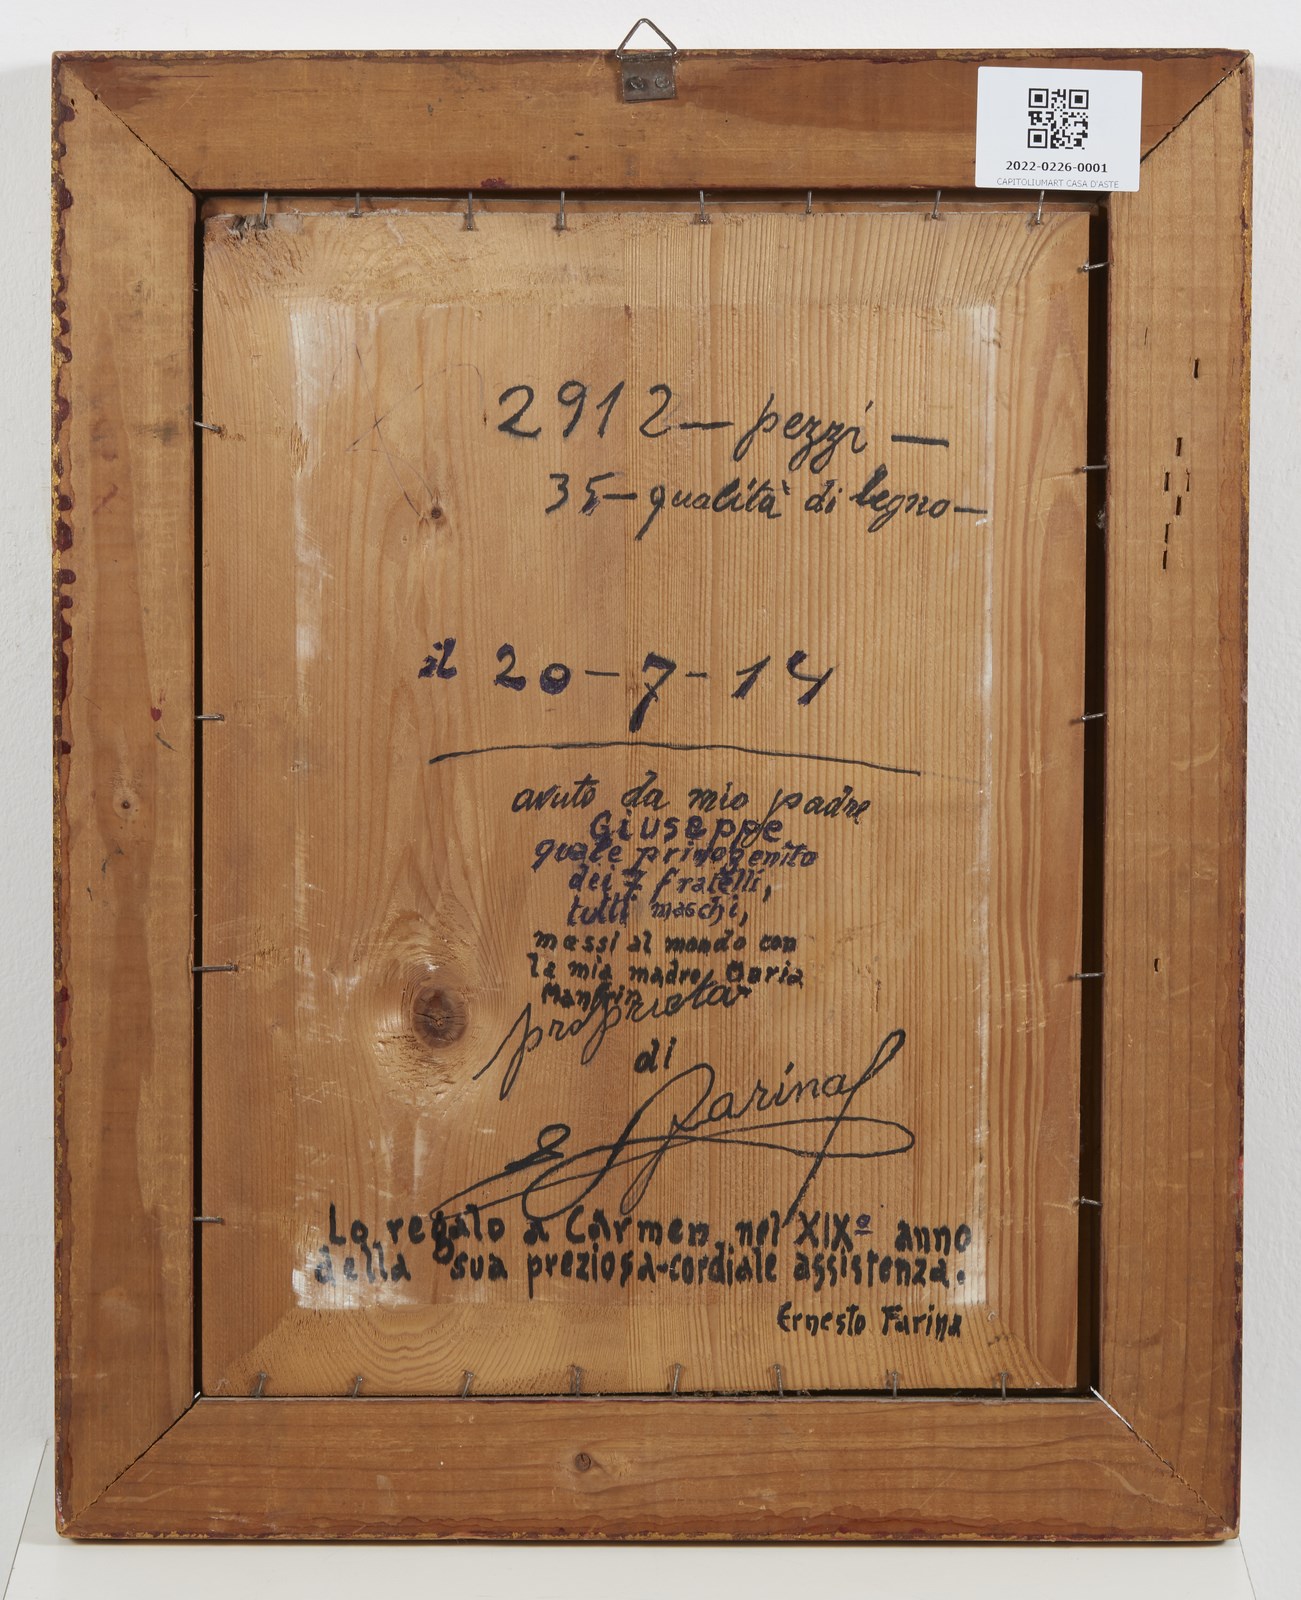 2022-0226-0001
CAPITOLIUMART CASA D'ASTE
2912 — pezzi —
35 — qualità di legno —
il 20-7-14
avuto da mio padre
Giuseppe
quale primogenito
dei 7 fratelli,
tutti maschi,
messi al mondo con
la mia madre Maria
Manfrin
proprietà
di
E Farina
Lo regalo a Carmen nel XIXº anno
della sua preziosa-cordiale assistenza.
Ernesto Farina